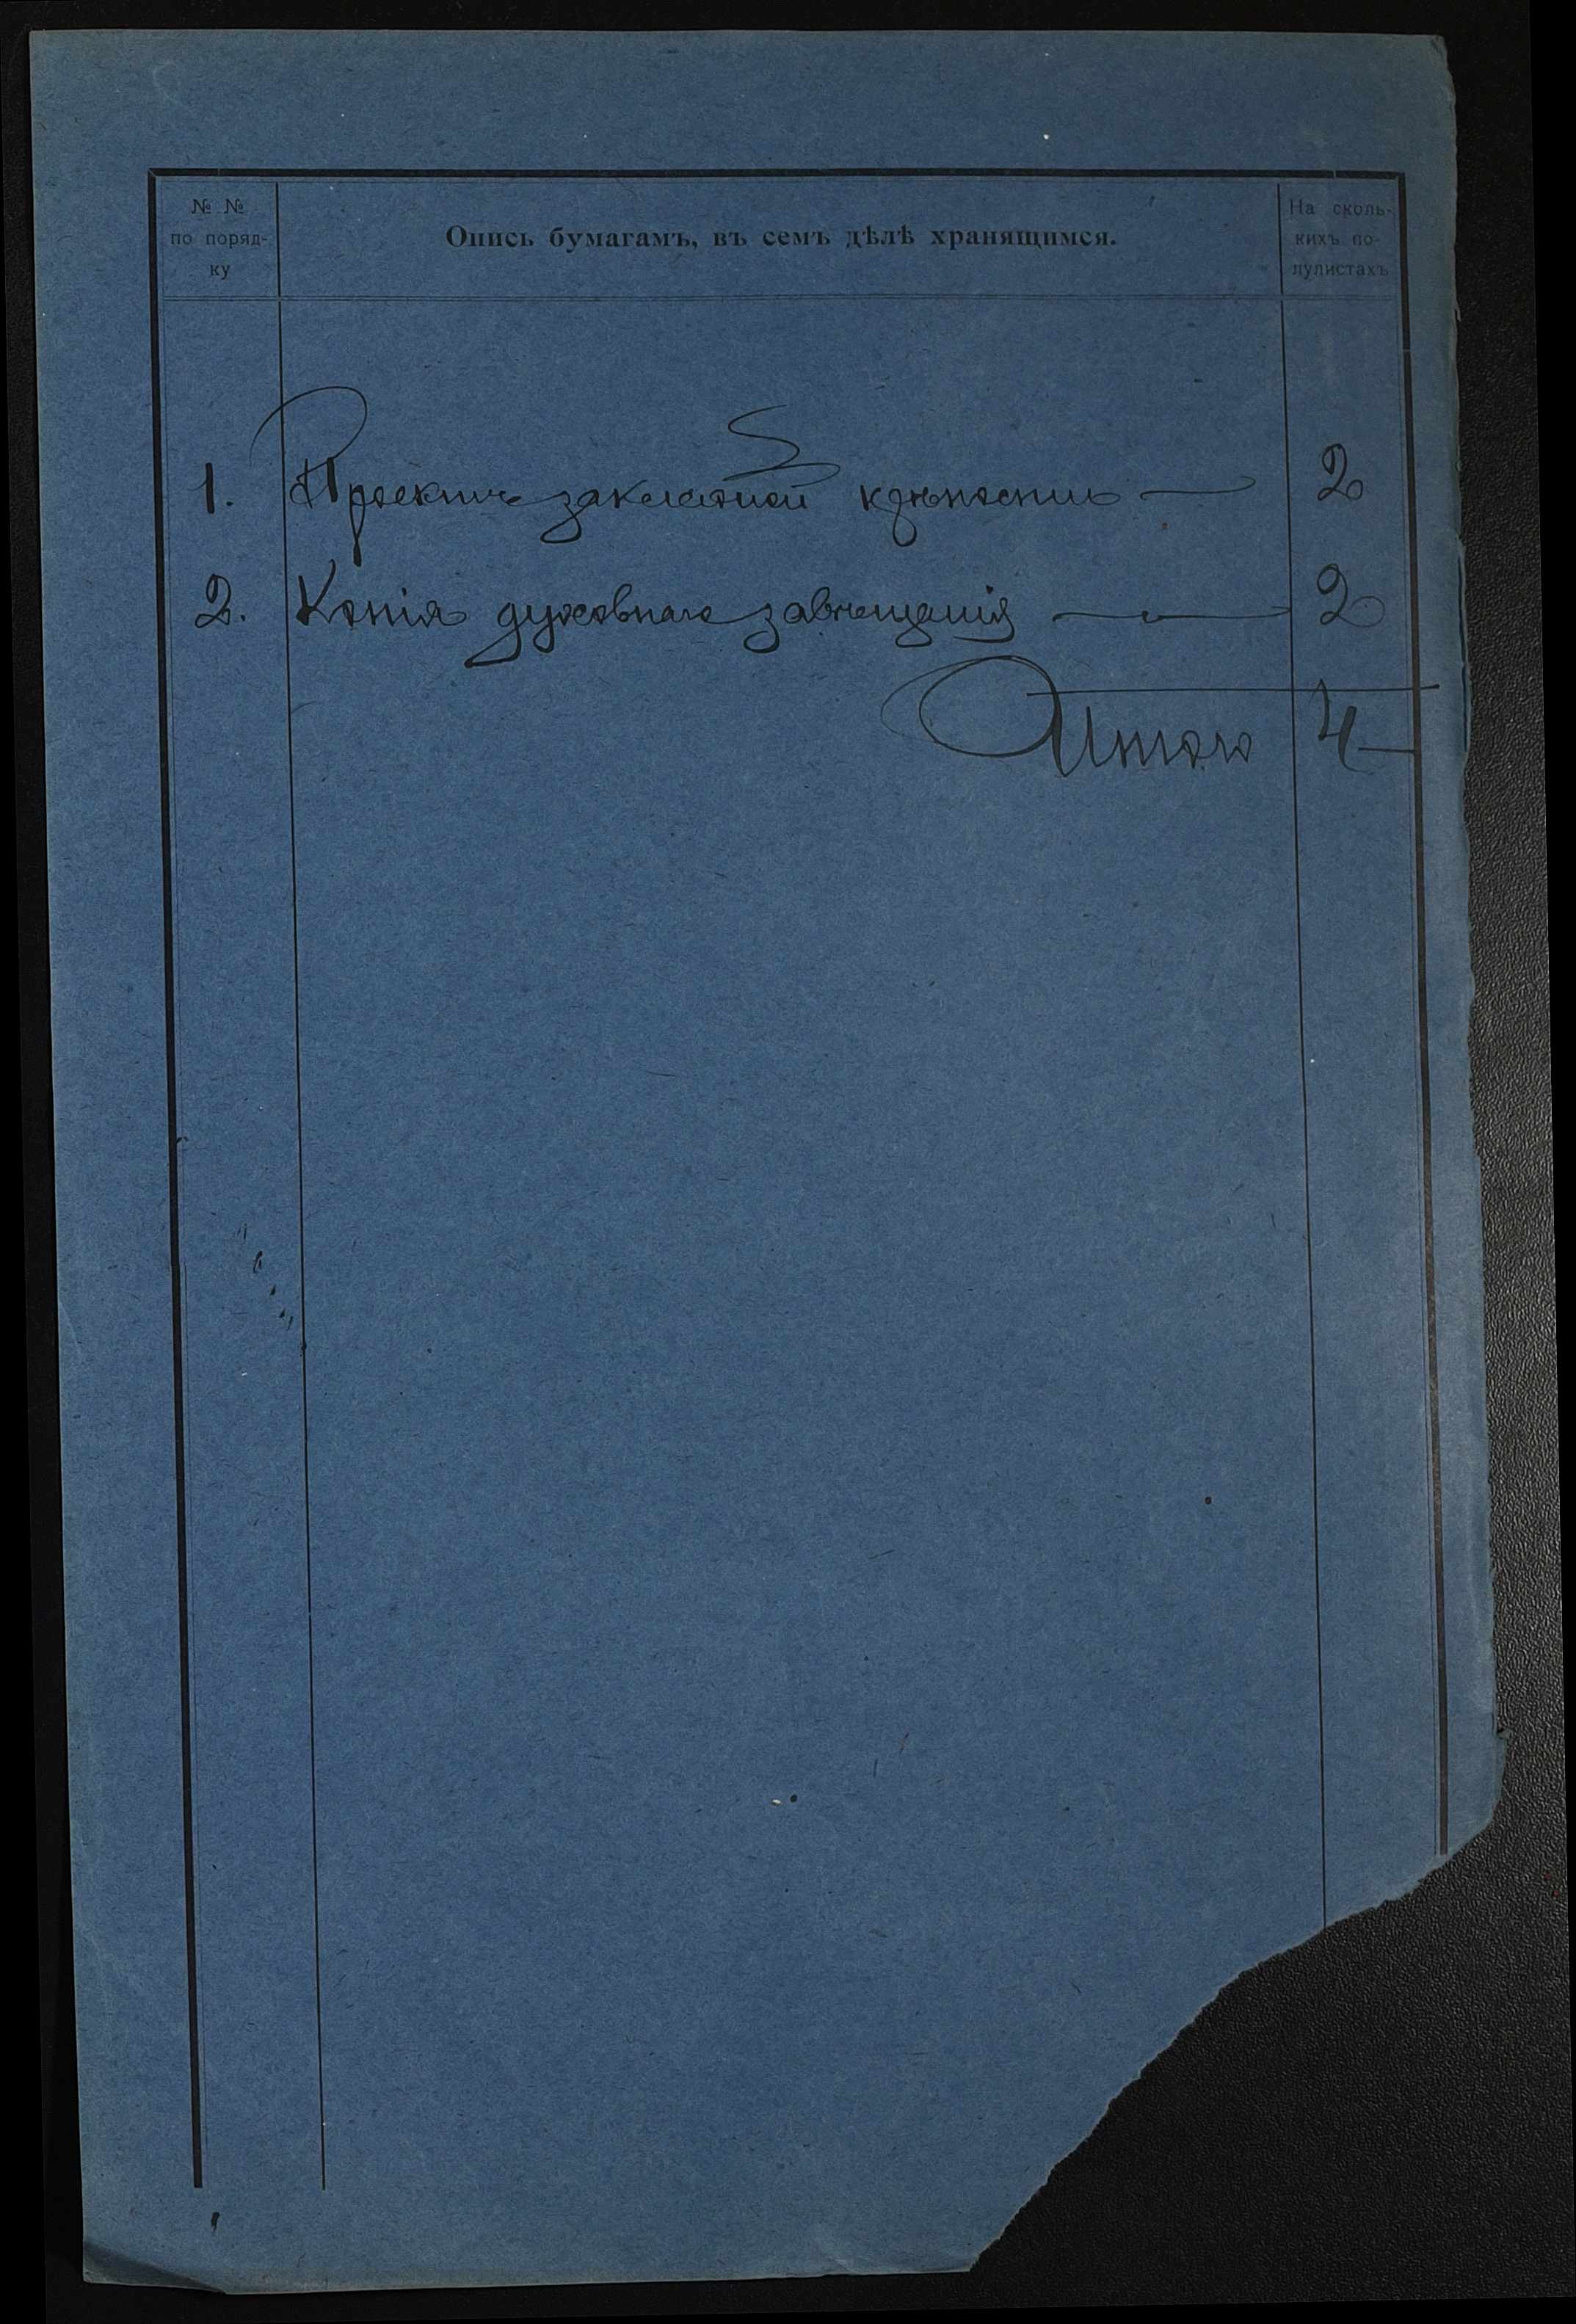 № №
по поряд-
ку
Опись бумагамъ, въ семъ дѣлѣ хранящимся.
На сколь-
кихъ по-
лулистахъ
1. Проектъ закладной крѣпости — 2
2. Копія духовнаго завѣщанія — 2
Итого 4